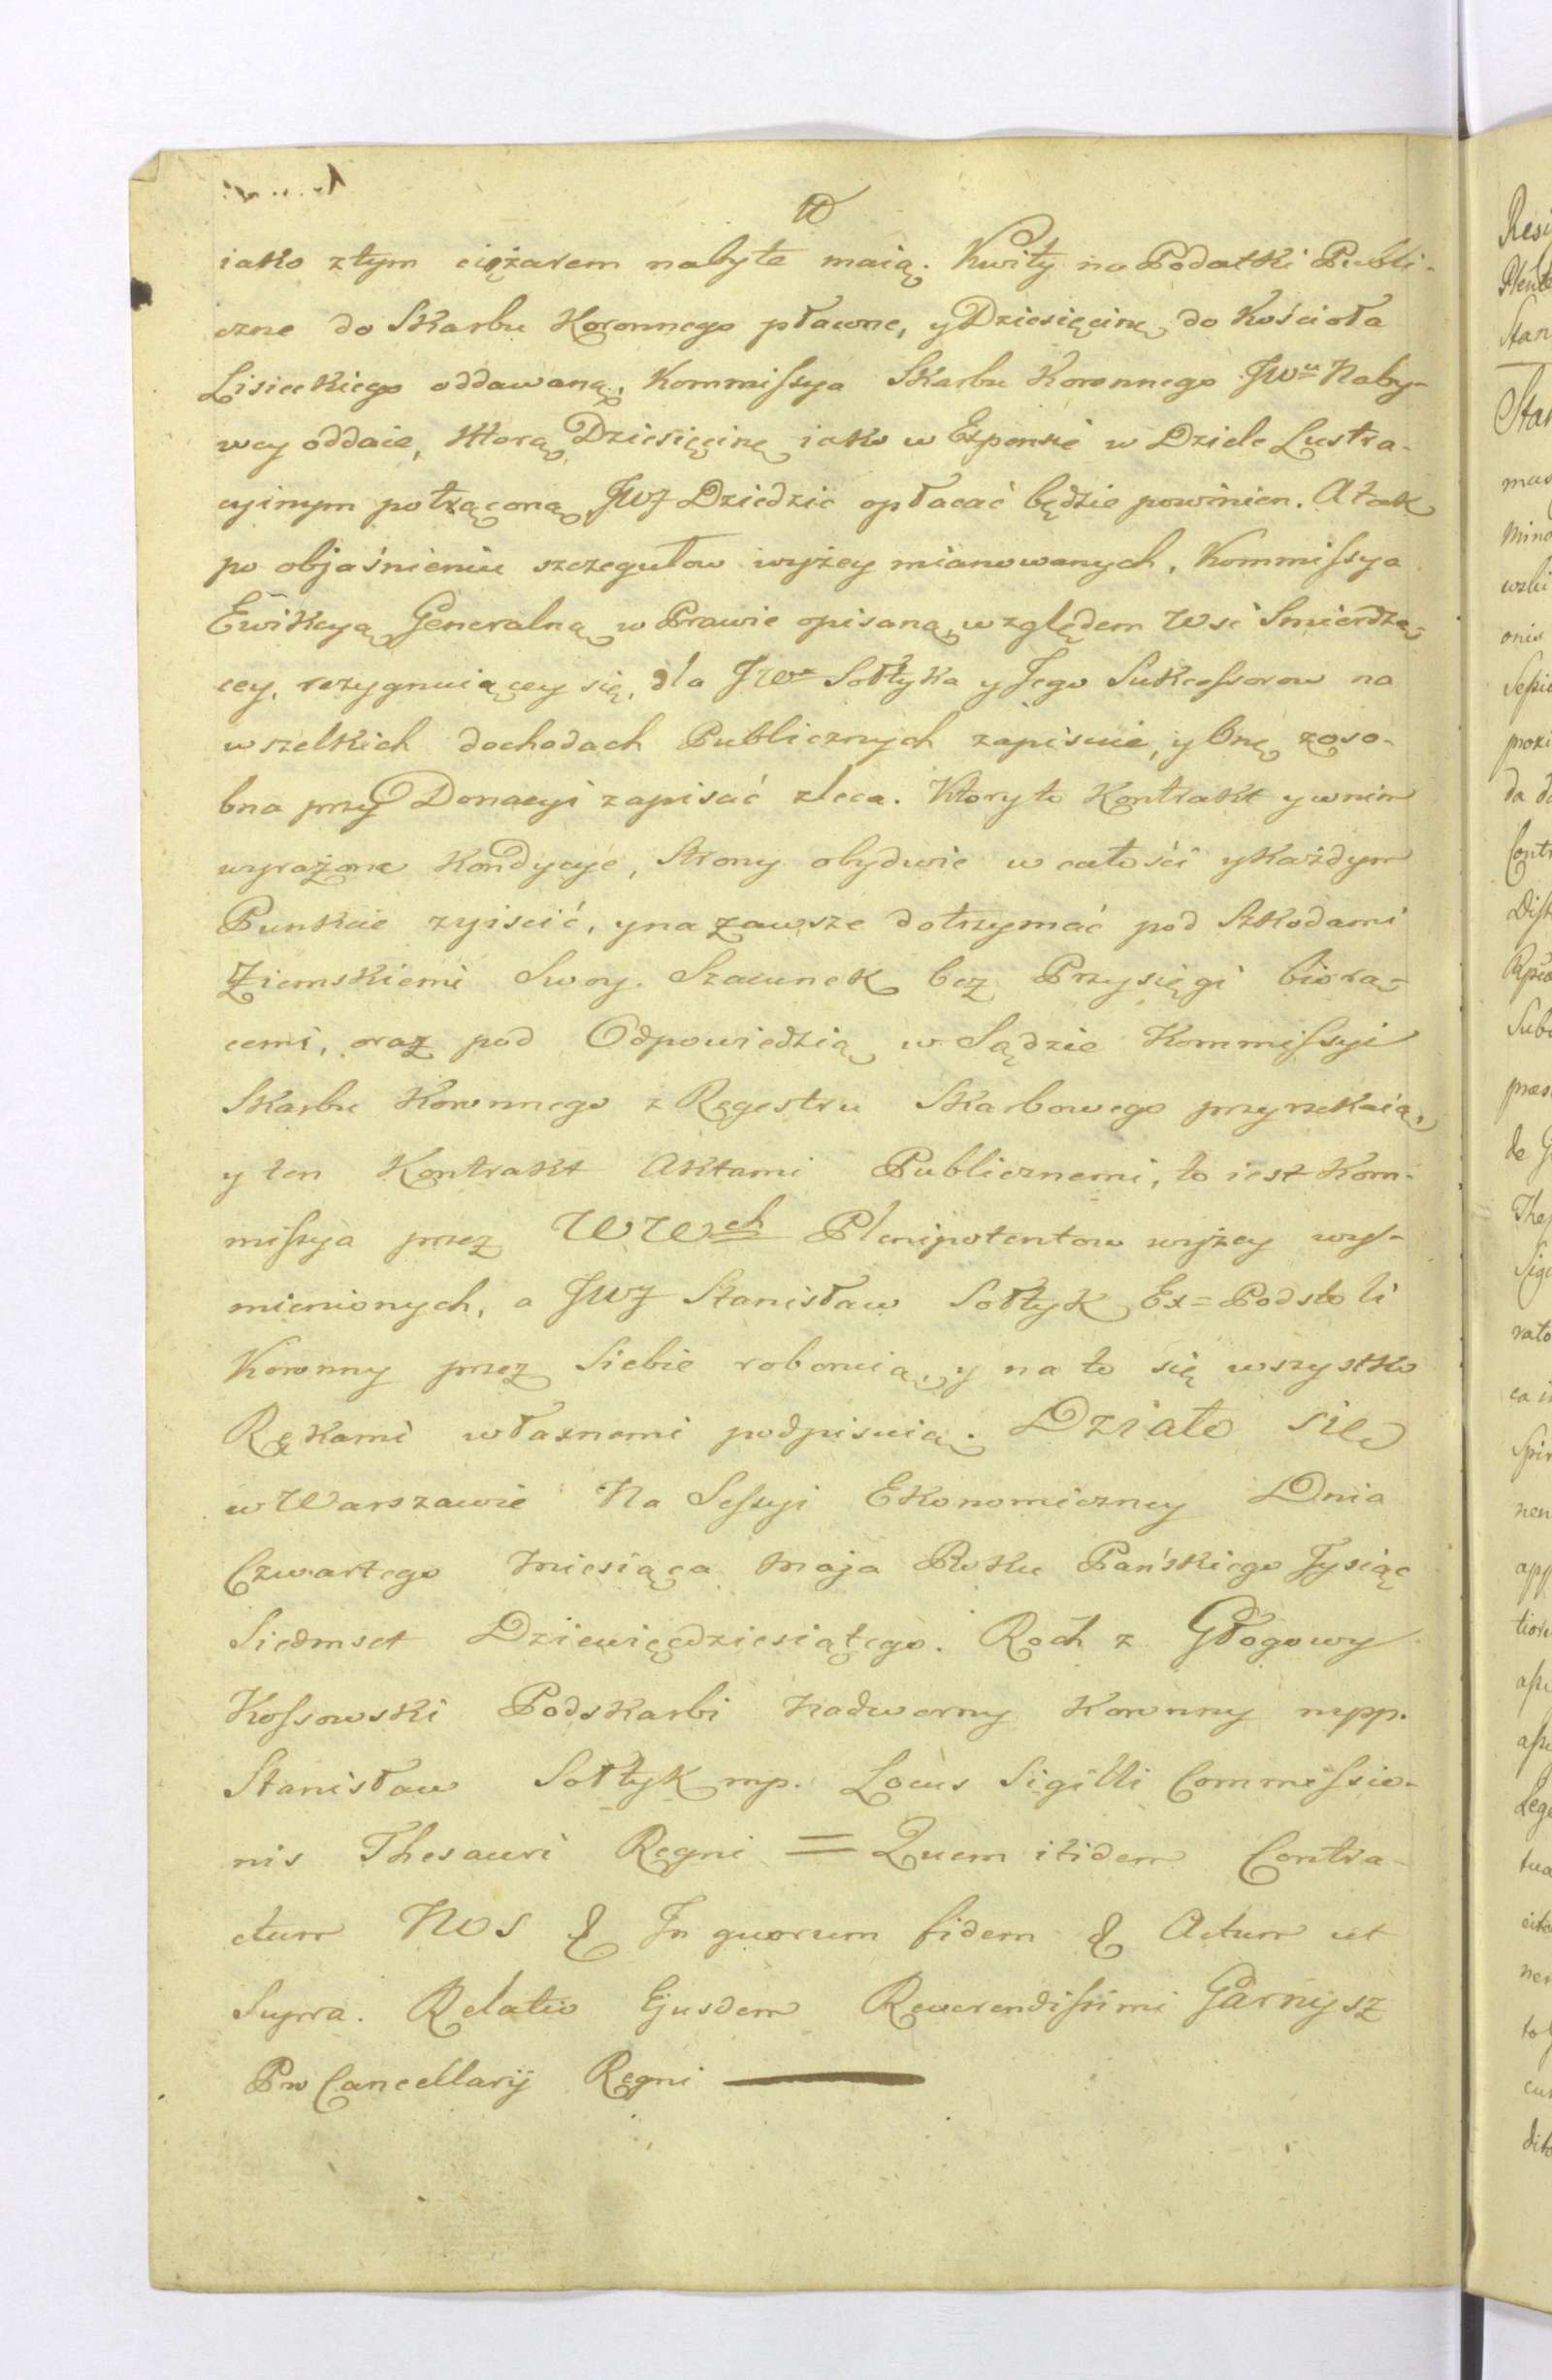 iako z tym ciężarem nabyte maią. Kwity na Podatki Publi-
czne do Skarbu Koronnego płacone, y Dziesięcinę do Kościoła
Lisieckiego oddawaną, Kommissya Skarbu Koronnego JWu Naby-
wcy oddaie, którą Dziesięcinę iako w Expensie w Dziele Lustra-
cyinym potrąconą JWJ Dziedzic opłacać będzie powinien. A tak
po objaśnieniu szczegułow wyżey mianowanych, Kommissya
Ewikcyą Generalną w Prawie opisaną, względem Wsi Smierdzą-
cey, rezygnuiącey się, dla JWo Sołtyka y Jego Sukcessorow na
wszelkich dochodach Publicznych zapisuie, y Onę zoso-
bna przy Donacyi zapisać zleca. Ktory to Kontrakt y w nim
wyrażone Kondycye, Strony obydwie w całości y Każdym
Punkcie zyiscić, y na zawsze dotrzymać pod Szkodami
Ziemskiemi Swoy Szacunek bez Przysięgi biorą-
cemi, oraz pod Odpowiedzią w Sądzie Kommissyi
Skarbu Koronnego z Regestru Skarbowego przyrzekaią,
y ten Kontrakt Aktami Publicznemi, to iest Kom-
missya przez WWch Plenipotentow wyżey wy-
mienionych, a JWJ Stanisław Sołtyk Ex=Podstoli
Koronny przez Siebie roboruią, y na to się wszystko
Rękami własnemi podpisuią. Działo się
w Warszawie Na Sessyi Ekonomiczney Dnia
Czwartego Miesiąca Maja Roku Pańskiego Tysiąc
Siedmset Dziewięćdziesiątego. Roch z Głogowy
Kossowski Podskarbi Nadworny Koronny mpp.
Stanisław Sołtyk mp. Locus Sigilli Commissio-
nis Thesauri Regni = Quem itidem Contra-
ctum NOS & In quorum fidem & Actum ut
Supra. Relatio Ejusdem Reverendissimi Garnysz
Pro Cancellarij Regni